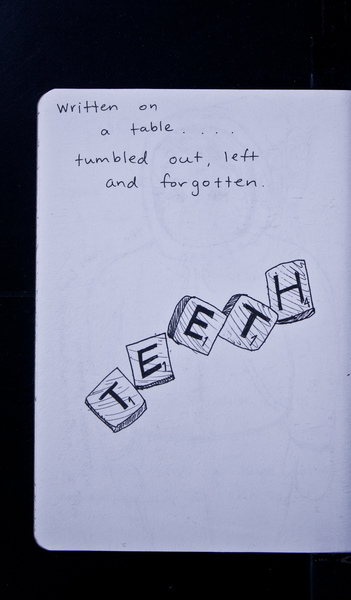 written on
a table....
tumbled out, left
and forgotten.
T1 E1 E1 T1 H4